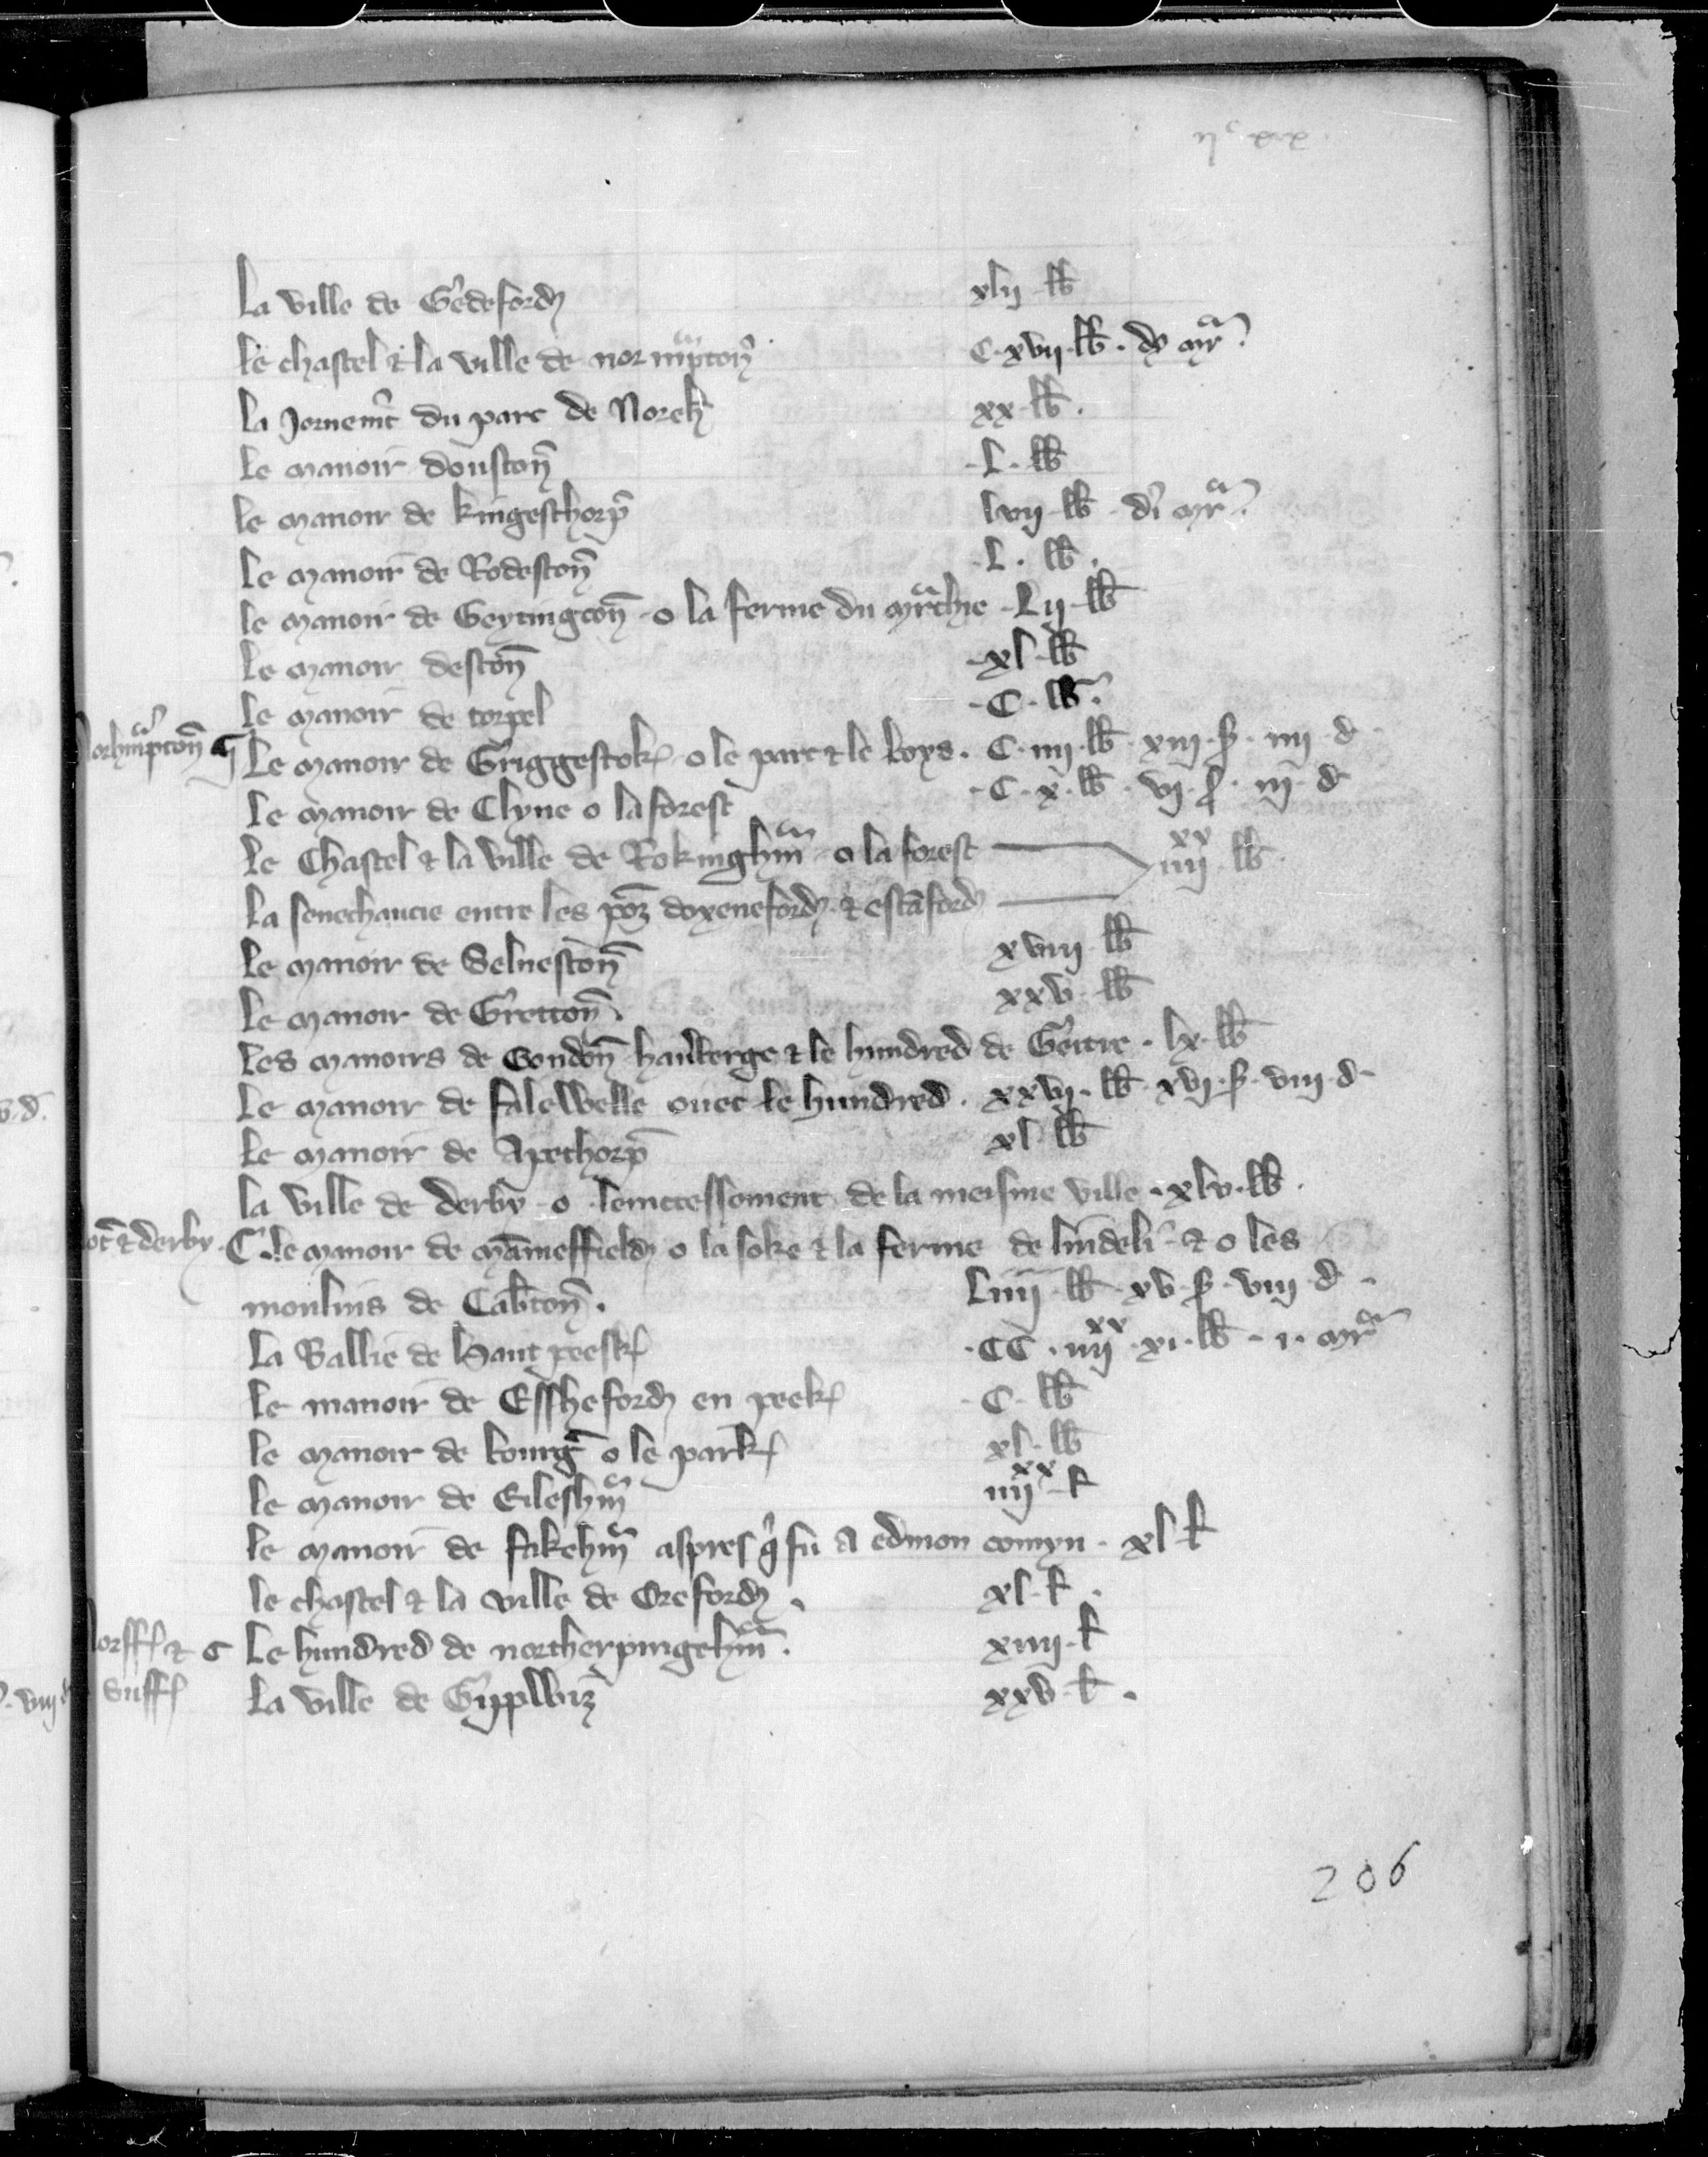 ijc xvx
La ville de Gedeford xlij lb
le chastel & la ville de norhmpton C. xvij. lb. dj mr
la Jornemt du parc de Noreh xx lb.
le manoir douston .L. lb
le manoir de kingesthorp lvij lb di mr
le manoir de Rodeston .L. lb.
le manoir de Geytington o la ferme du mrchie Lij lb
le manoir deston xl lb
le manoir de torpel .C. lb.
orhmpton Le manoir de Griggestok o le parc & le boys. C. iiij. lb. xiij. s. iiij. d
Le manoir de Clyue o la forest .C. x. lb. vj. s. iij. d
le Chastel & la ville de Rokinghm o la forest iiijxx lb
la seneschaucie entre les poz doxeneford & estaford
le manoir de Selueston xviij lb
le manoir de Gretton. xxv. lb
les manoirs de Gondon hauberge & le hundred de Geitre. lx. lb
le manoir de falewelle ouec le hundred. xxvj. lb. xvj. s. viij. d
le manoir de Apethorp xl lb
la ville de derby o lencressement de la meisme ville. xlv. lb.
ot & derby. C. le manoir de mameffield o la soke & la ferme de lindeli & o les
moulins de Cabton. Liiij lb. xv. s. viij. d.
La Ballie de haut peesk .CC. iiijxx xi. lb. i. mr
le manoir de Essheford en peek C. lb
le manoir de bourg o le park xl. lb
le manoir de Eileshm iiijxx l
le manoir de fakehm aspres q fu a edmon comyn. xl l
le chastel & la ville de Oreford. xl. l.
orff & Le hundred de northerpingehm. xiiij. l
suff la ville de Gippwiz xxv. l.
206